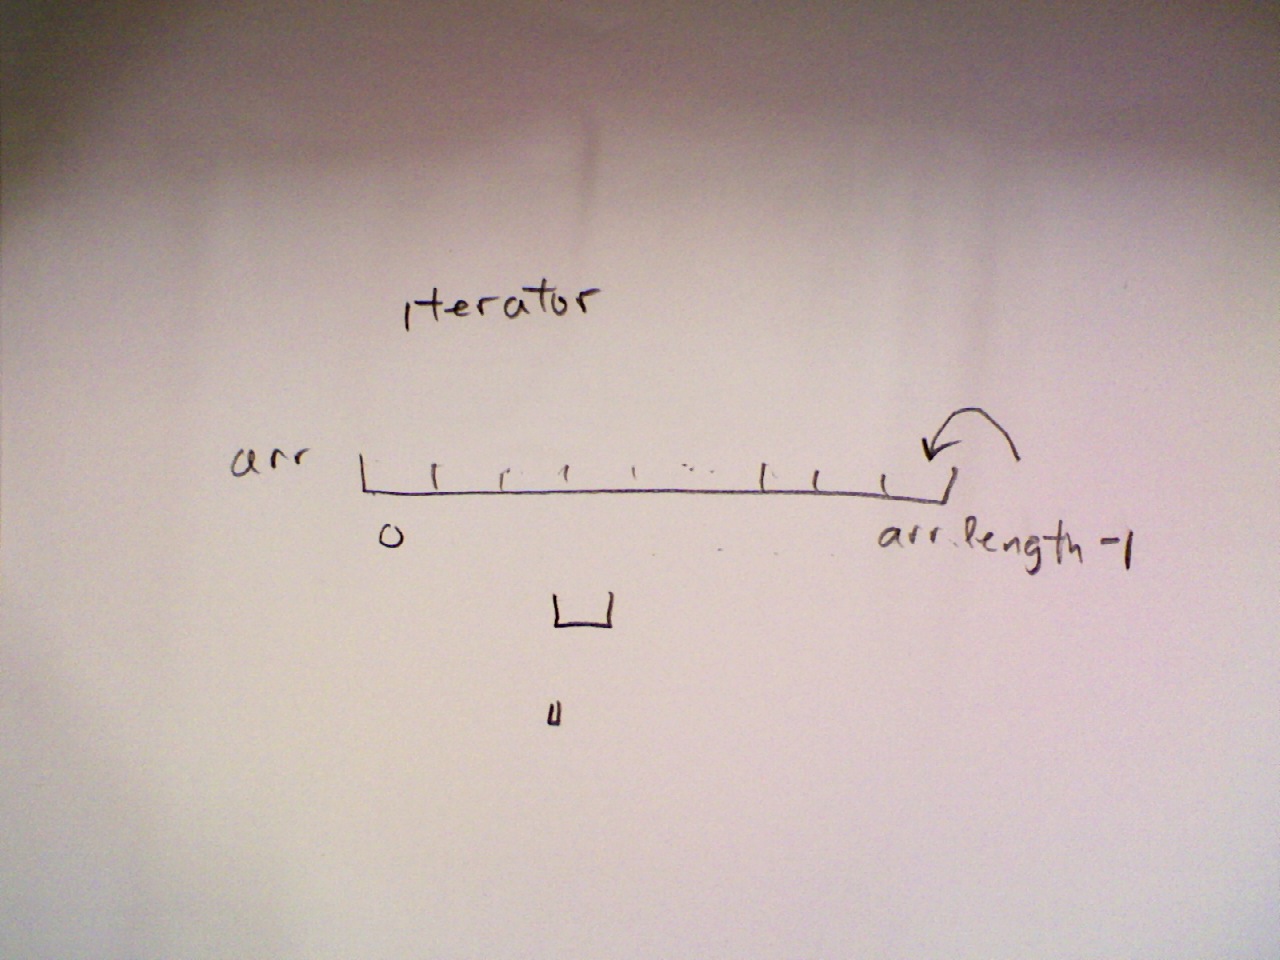 iterator
arr
0 arr.length-1